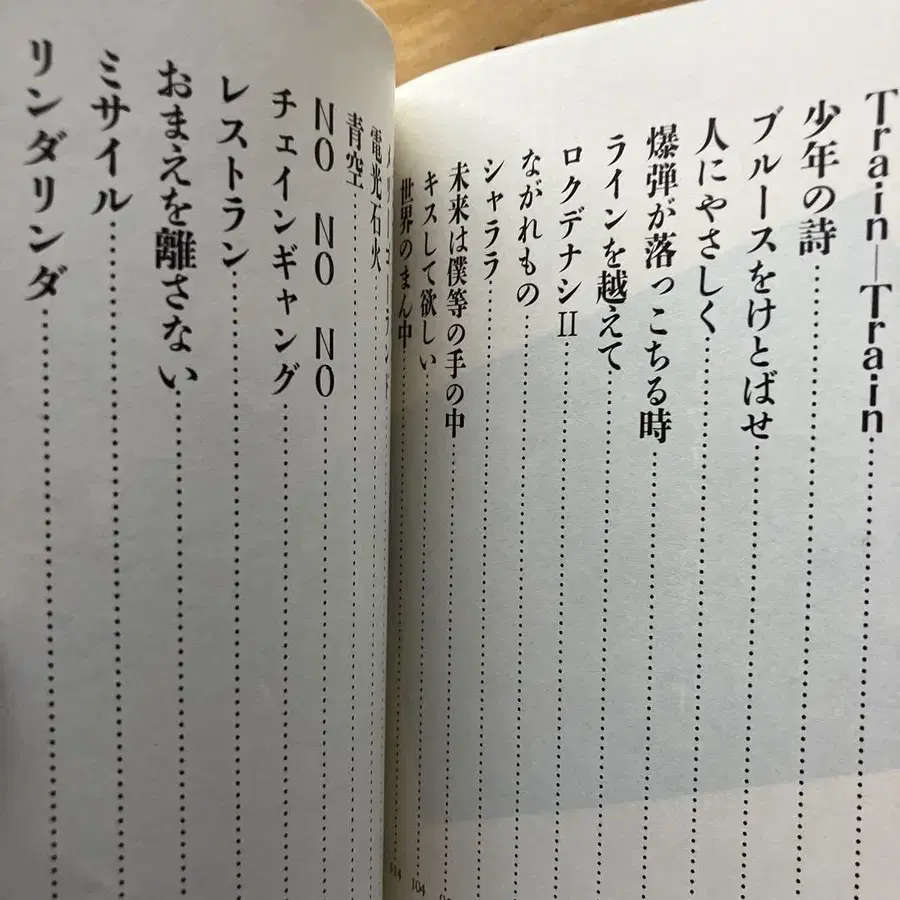 Train-Train
少年の詩
ブルースをけとばせ
人にやさしく
爆弾が落っこちる時
ラインを越えて
ロクデナシII
ながれもの
シャララ
未来は僕等の手の中
キスして欲しい
世界のまん中
電光石火
青空
NO NO NO
チェインギャング
レストラン
おまえを離さない
ミサイル
リンダリンダ
104